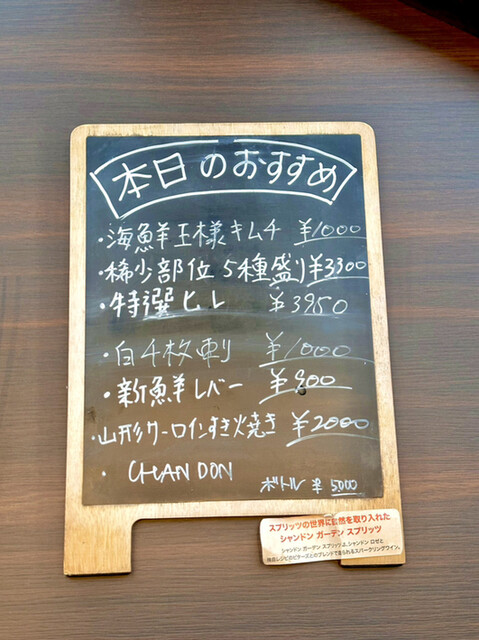 本日のおすすめ
・海鮮王様キムチ ¥1000
・稀少部位 5種盛り ¥3300
・特選ヒレ ¥3950
・白千枚刺 ¥1000
・新鮮レバー ¥900
・山形サーロインすき焼き ¥2000
・CHANDON ボトル ¥5000
スプリッツの世界に自然を取り入れた
シャンドン ガーデン スプリッツ
シャンドン ガーデン スプリッツは、シャンドン ロゼと
レシピのビターズとのブレンドで造られるスパークリングワイン。